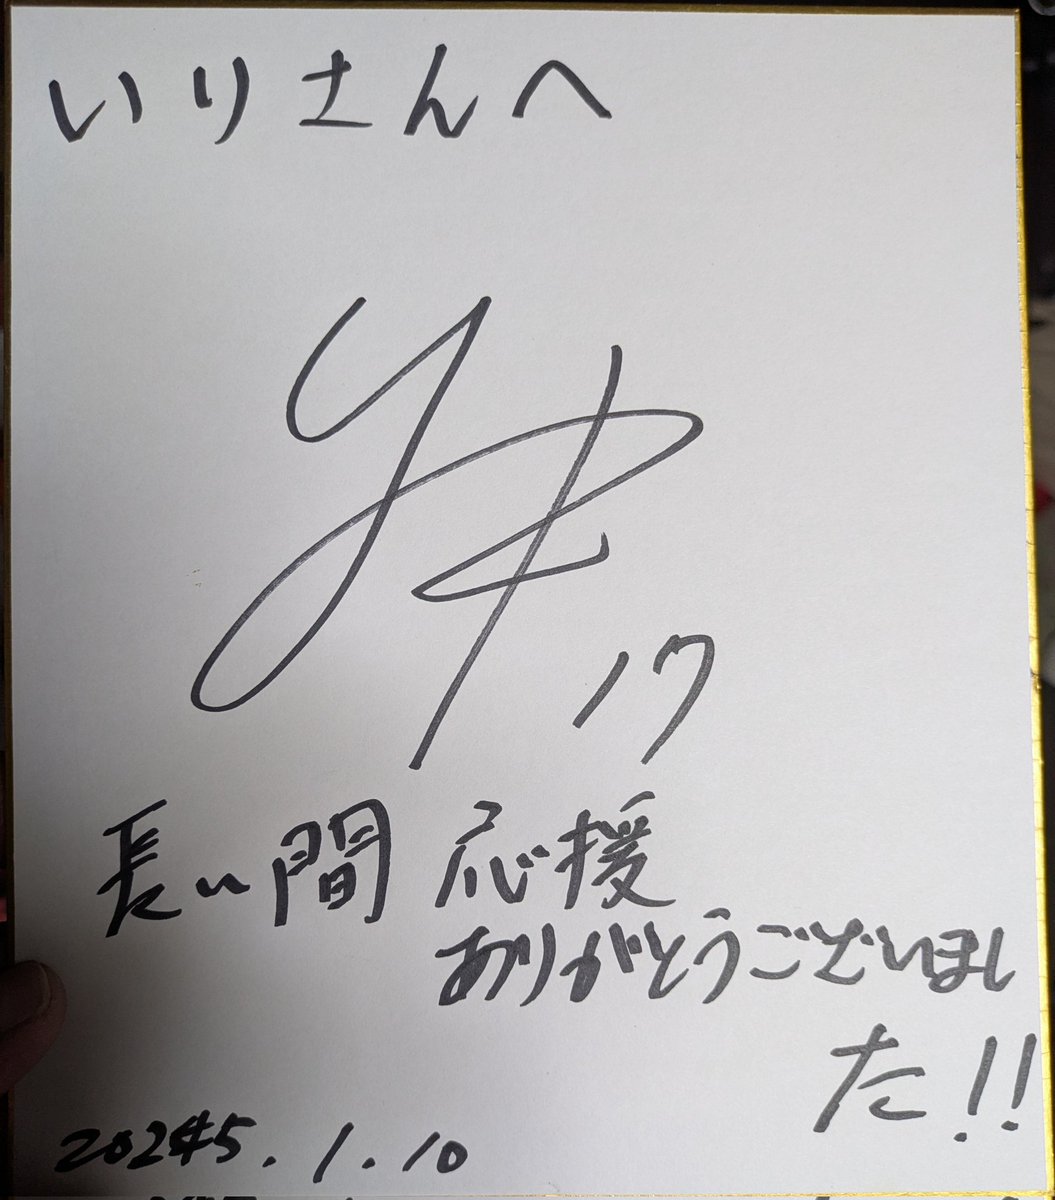 いりさんへ
17
長い間 応援
ありがとうございまし
た!!
2025.1.10